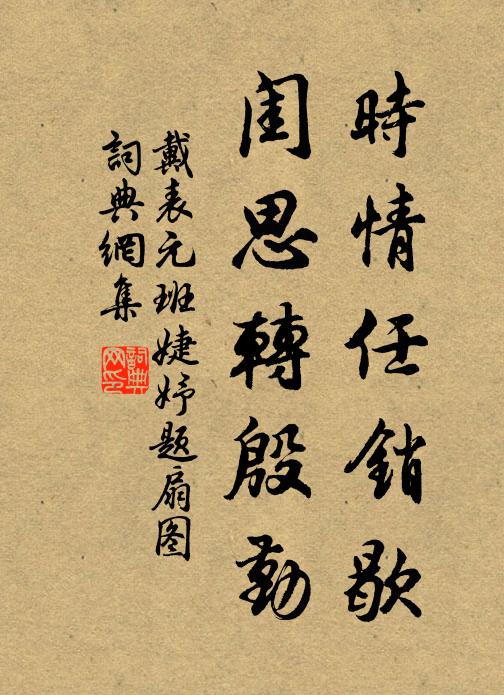 時情任銷歇
闺思轉殷勤
戴表元班婕妤题扇图
詞典網集
詞典
网印